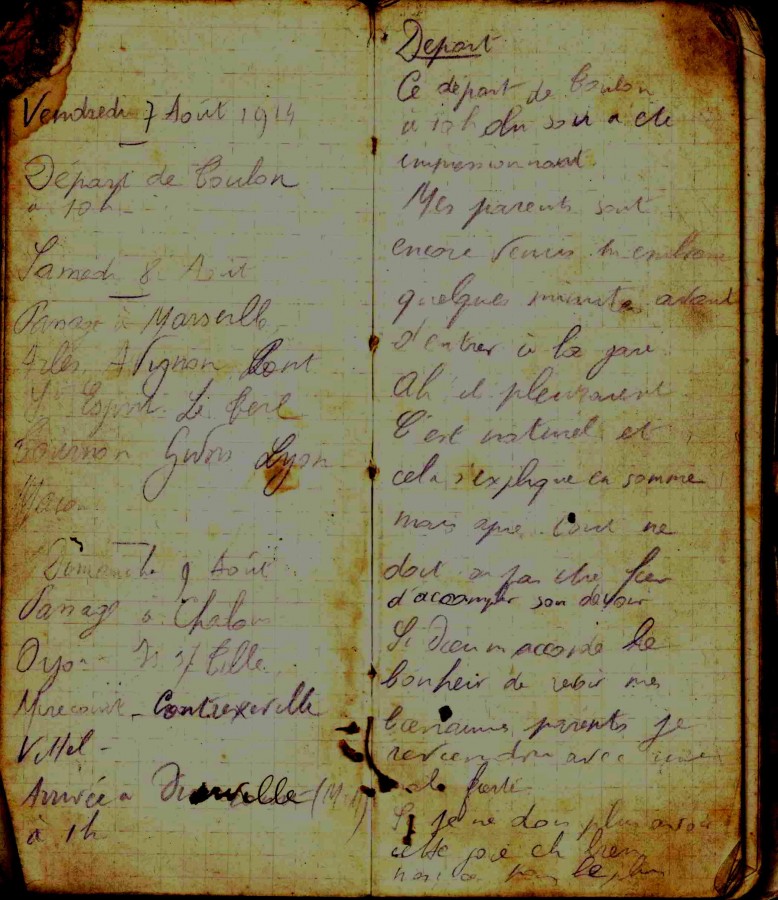 Vendredi 7 Août 1914
Départ de Toulon
à 10h
Samedi 8 Août
Passage à Marseille
Arles Avignon Pont
St Esprit Le Teil
Tournon Givors Lyon
Macon
Dimanche 9 Août
Passage à Chalon
Dijon Is s/ Tille
Mirecourt - Contrexeville
Vittel -
Arrivée à
à 1h
Depart
Ce départ de Toulon
à 10h du soir a été
impressionnant
Mes parents sont
encore venus m'embrasser
quelques minutes avant
d'entrer à la gare
Ah il pleuraient
C'est naturel et
cela s'explique en somme
mais après tout ne
doit on pas être fier
d'accomplir son devoir
Si Dieu m'accorde le
bonheur de revoir mes
parents je
reviendrai avec une
Si je ne dois plus avoir
cette joie eh bien
le plus